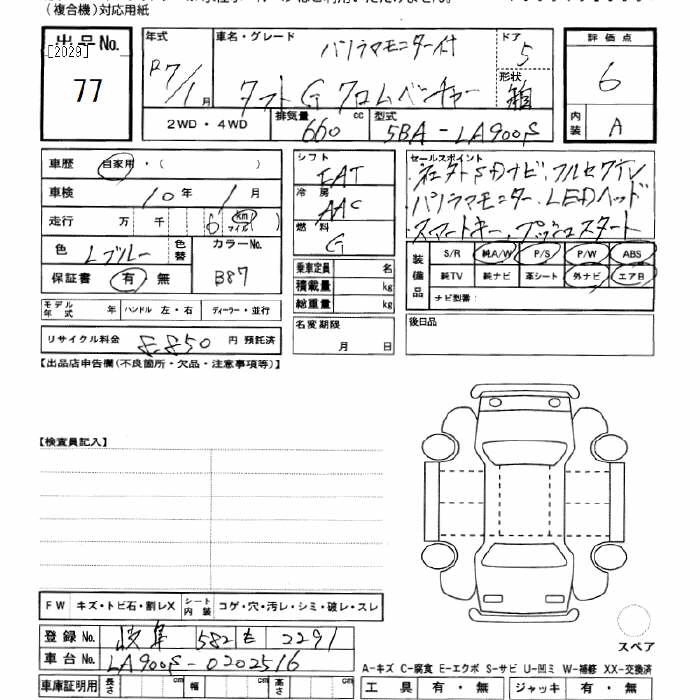 (複合機)対応用紙
出品No.
[2029]
77
年式
R7/1月
車名・グレード
パノラマモニター付
タフト G クロムベンチャー
ドア
5
形状
箱
評価点
6
内装
A
2WD・4WD
排気量
660
cc
型式
5BA-LA900S
車歴
自家用・( )
車検
10年 1月
走行
万
千
6
km
マイル
( )
色
Lブルー
色替
カラーNo.
B87
保証書
有・無
モデル年式
年
ハンドル 左・右
ディーラー・並行
リサイクル料金
8850
円 預託済
シフト
FAT
冷房
AAC
燃料
G
乗車定員
名
積載量
kg
総重量
kg
名変期限
月 日
セールスポイント
・ネクストSDナビ・フルセグTV
・パノラマモニター・LEDヘッド
・スマートキー・プッシュスタート
装備品
S/R
純A/W
P/S
P/W
ABS
純TV
純ナビ
革シート
外ナビ
エアB
ナビ型番:
後日品
【出品店申告欄(不良箇所・欠品・注意事項等)】
【検査員記入】
FW
キズ・トビ石・割レX
シート内装
コゲ・穴・汚レ・シミ・破レ・スレ
登録No.
岐阜 582 を 2291
車台No.
LA900S-0202516
車庫証明用
長さ
cm
幅
cm
高さ
cm
スペア
A-キズ C-腐食 E-エクボ S-サビ U-凹ミ W-補修 XX-交換済
工具
有・無
ジャッキ
有・無